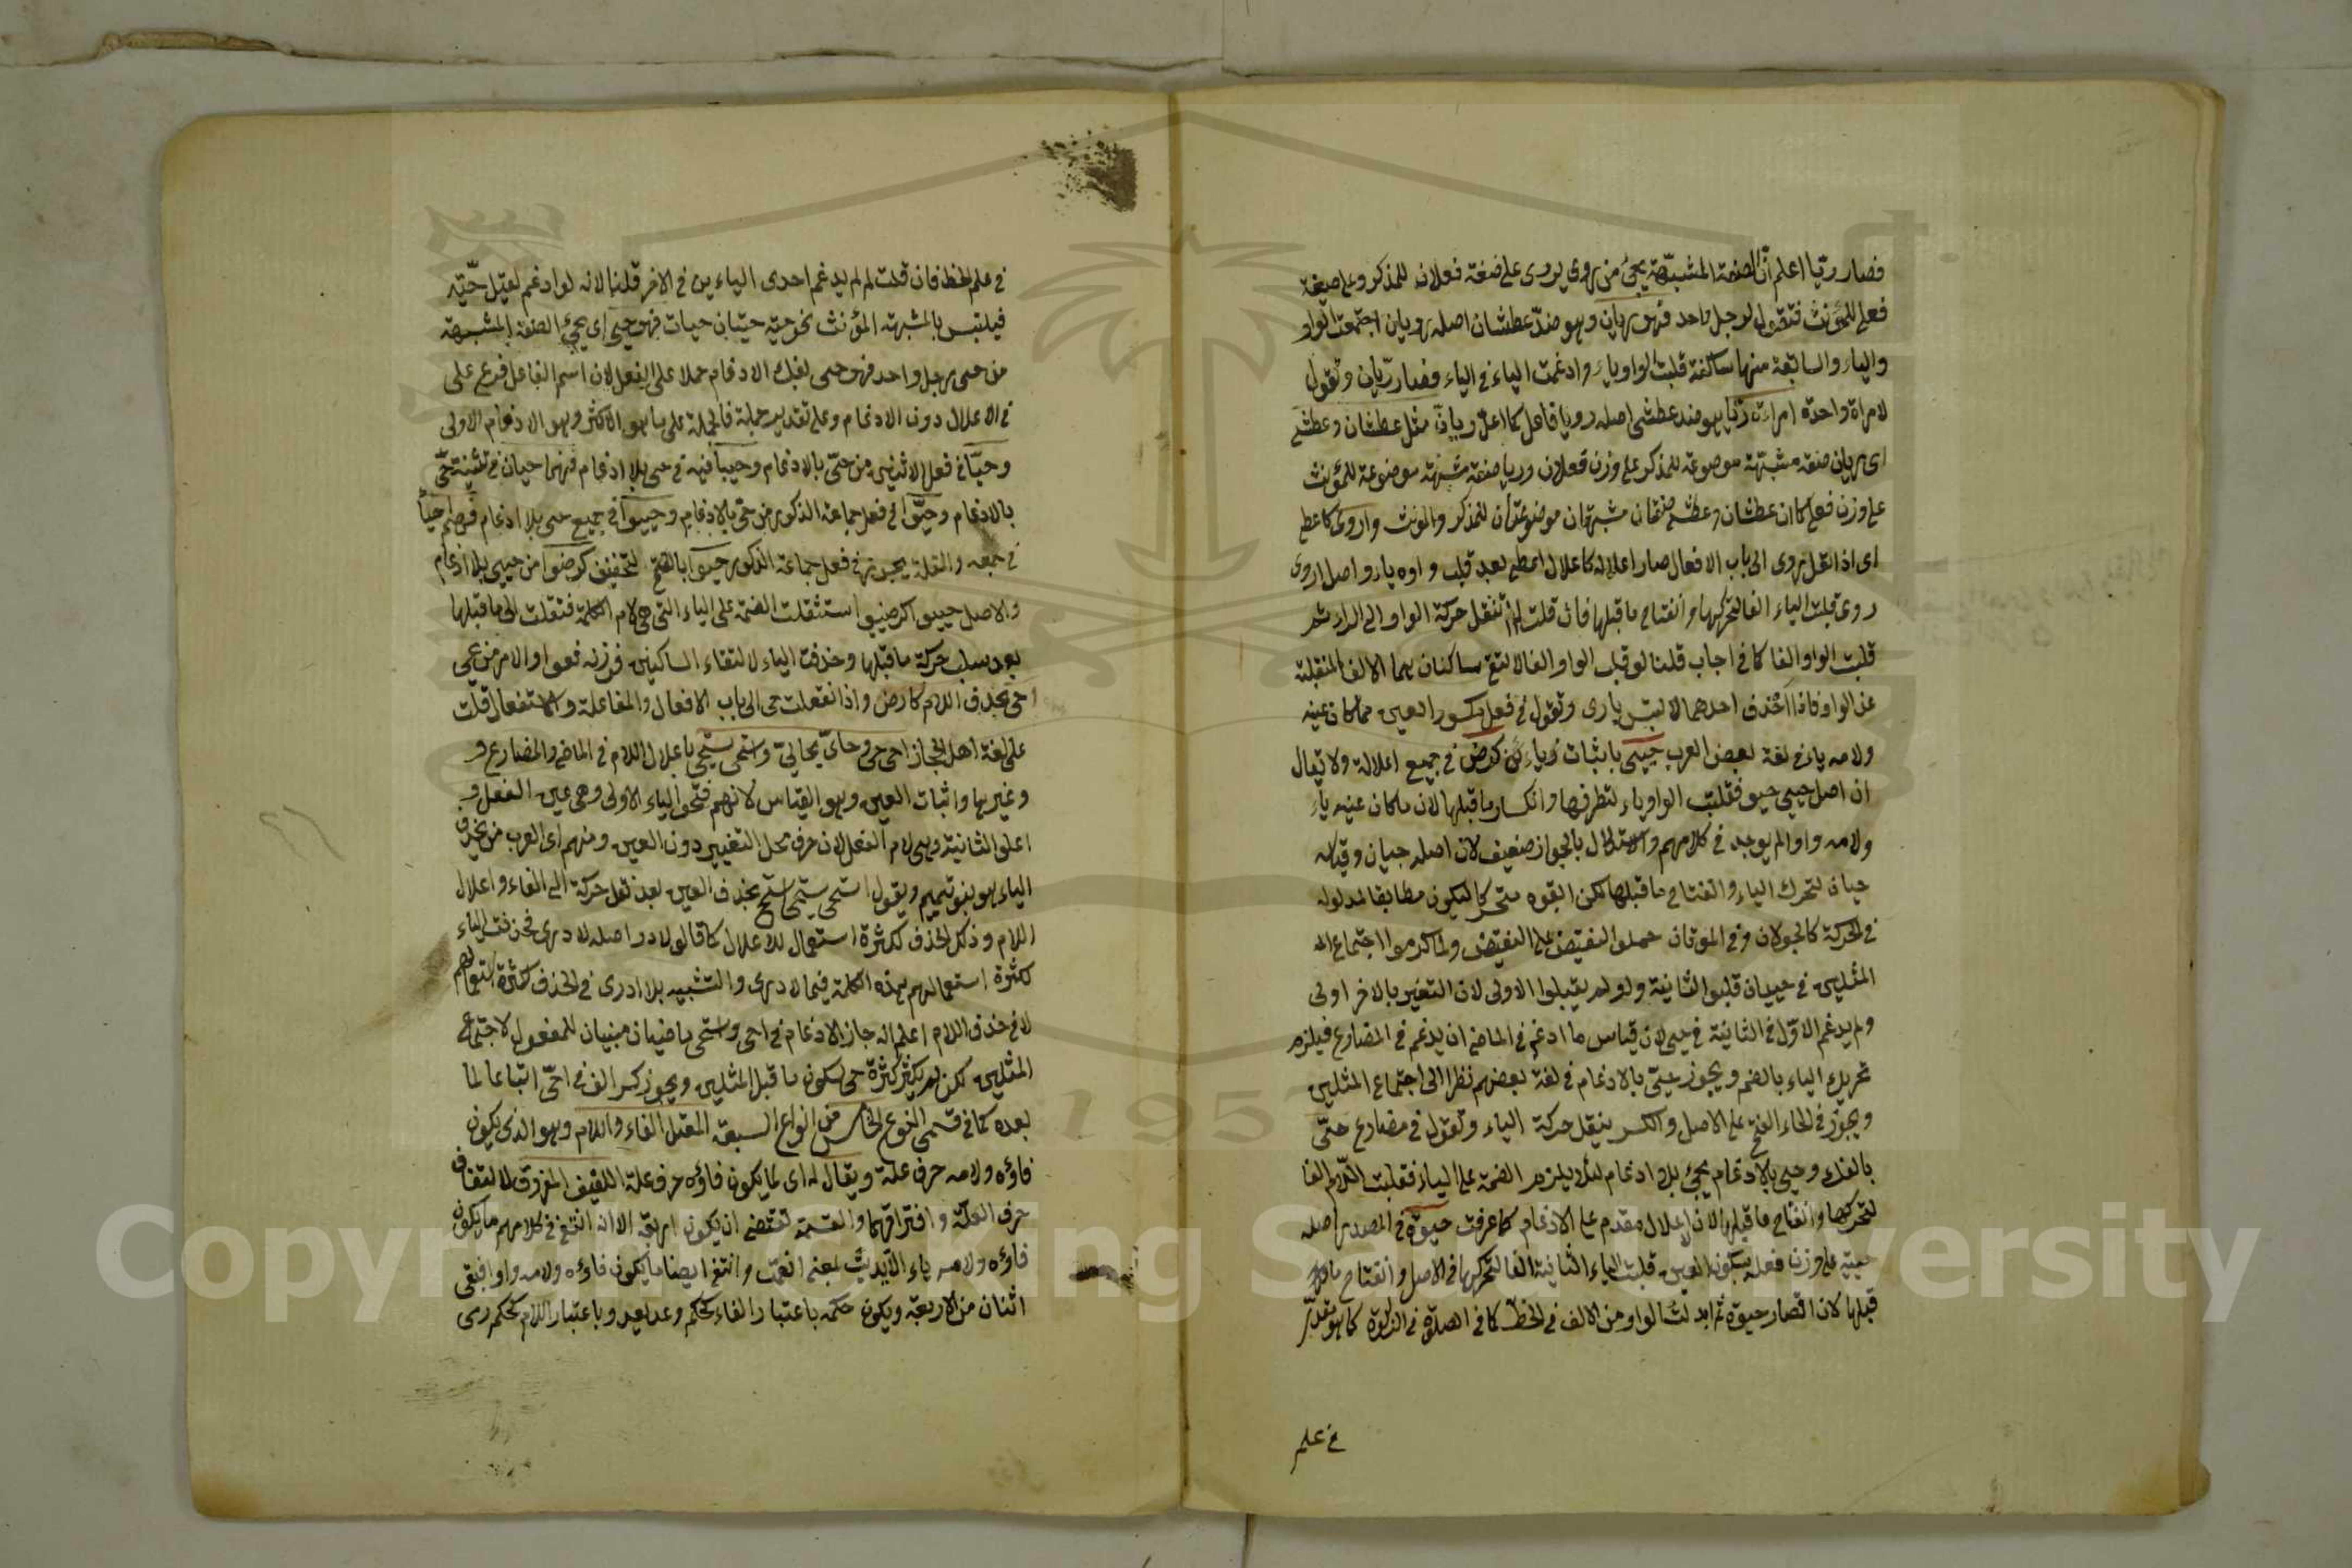 فصار ريّا اعلم انّ الصفة المشبّهة يجئ من روى يروى على صفة فعلان للمذكر وعلى صيغة
فعلى للمؤنث فتقول لرجل واحد فهو ريان وهو ضدّ عطشان اصله رويان اجتمعت الواو
والياء والسابقة منها ساكنة قلبت الواو ياء وادغمت الياء في الياء فصار ريّان وتقول
لامراة واحدة امراة ريّا هو ضد عطشى اصله رويا فاعل كاعلال ريان مثل عطشان وعطشى
اى ريان صفة مشبّهة موضوعة للمذكر على وزن فعلان وريا صفة مشبّهة موضوعة للمؤنث
على وزن فعلى كما ان عطشان وعطشى صفتان مشبهتان موضوعتان للمذكر والمؤنث واروى كاعطى
اى اذا نقل روى الى باب الافعال صار اعلاله كاعلال اعطى بعد قلب واوه ياء واصل اروى
روى قلبت الياء الفا لتحركها وانفتاح ما قبلها فان قلت لم لم تنقل حركة الواو الى الراء ثم
قلبت الواو الفا كما في اجاب قلنا لو قلب الواو الفا لالتقى ساكنان هما الالف المنقلبة
عن الواو فاذا حذف احدهما لالتبس بارى وتقول في فعل مكسور العين مما كان عينه
ولامه ياء في لغة بعض العرب حيى باثبات ياءين كرضى في جميع اعلاله ولا يقال
ان اصل حيى حيو فقلبت الواو ياء لتطرفها وانكسار ما قبلها لان ما كان عينه ياء
ولامه واوا لم يوجد في كلامهم والاستدلال بالحيوان ضعيف لان اصله حييان وقياسه
حيان لتحرك الياء وانفتاح ما قبلها لكن ابقوه متحركا ليكون مطابقا لمدلوله
في الحركة كالجولان وفي الموتان حملوا النقيض على النقيض ولما كرهوا اجتماع
المثلين في حييان قلبوا الثانية ولو لم يقلبوا الاولى لان التغير بالاخر اولى
ولم يدغم الاوّل في الثانية في حيى لان قياس ما ادغم في الماضى ان يدغم في المضارع فيلزم
تحريك الياء بالضم ويجوز حيّى بالادغام في لغة بعضهم نظرا الى اجتماع المثلين
ويجوز في الحاء الفتح على الاصل والكسر بنقل حركة الياء وتقول في مضارع حيّى
بالفك وحيى بالادغام يجئ بلا ادغام لئلا يلزم الضمة على الياء فقلبت اللام الفا
لتحركها وانفتاح ما قبلها لان الاعلال مقدم على الادغام كما عرفت حيوة في المصدر اصله
حيية على وزن فعلة بسكون العين قلبت الياء الثانية الفا لتحركها في الاصل وانفتاح ما
قبلها لان فصار حيوة ثم ابدلت الواو من الالف في الخط كما في الصلوة والزكوة كما هو مقرّر
في علم
في علم الخط فان قلت لم لم يدغم احدى الياءين في الاخر قلنا لانه لو ادغم لقيل حيّة
فيلتبس بالمشبهة المؤنث نحو حية حيّتان حيات فهو حيّى اى يجئ الصفة المشبهة
من حى رجل واحد فهو حى بفك الادغام حملا على الفعل لان اسم الفاعل فرع على
في الاعلال دون الادغام وعلى تقدير حمله فالحملة على ما هو الاكثر وهو الادغام الاولى
وحيّا في فعل الاثنين من حىّ بالادغام وحييا فيه في حى بلا ادغام فهما حيان في تثنية حىّ
بالادغام وحيّوا في فعل جماعة الذكور من حى بالادغام وحييوا في جميع حى بلا ادغام فهم احياء
في جمعه والقلة يجوز في فعل جماعة الذكور حيوا بالضم لتخفيف كرضوا من حيى بلا ادغام
والاصل حييوا كرضيوا استثقلت الضمة على الياء التى هى لام الكلمة فنقلت الى ما قبلها
بعد سلب حركة ما قبلها وحذفت الياء لالتقاء الساكنين فوزنه فعوا والامر من حيى
احى بحذف اللام كارض واذا نقلت حى الى باب الافعال والمفاعلة والاستفعال قلت
على لغة اهل الحجاز احى يحى وحاىّ يحايى واستحى يستحى باعلال اللام في الماضى والمضارع و
وغيرها واثبات العين وهو القياس لانهم فتحوا الياء الاولى وهى عين الفعل و
اعلوا الثانية وهى لام الفعل لان حرف محل التغيير دون العين ومنهم اى العرب من يحذف
الياء هو بنو تميم ويقول استحى يستحى استح بحذف العين بعد نقل حركة الى الفاء واعلال
اللام وذلك الحذف لكثرة استعمال للاعلال كما قالوا لا ادر اصله لا ادرى فحذفت الياء
لكثرة استعمالهم هذه الكلمة فيما لا ادرى والتشبيه بلا ادرى في الحذف لكثرة استعمالهم
لا في حذف اللام اعلم انه جاز الادغام في احى واستحى ماضيان مبنيان للمفعول لاجتماع
المثلين لكن لم يكثر كثرة حى لسكون ما قبل المثلين ويجوز كسر الف في احّى اتباعا لما
بعده كما في قسمى النوع الخامس من انواع السبعة المعتل الفاء واللام وهو الذى يكون
فاؤه ولامه حرف علة ويقال له اى لما يكون فاؤه حرف علة اللفيف المفروق لالتفاف
حرف العلة وافتراقهما والقسمة تقتضى ان يكون اربعة الا انه انتفى في كلامهم ما يكون
فاؤه ولامه ياء الا يديت بمعنى انعمت وانتفى ايضا ما يكون فاؤه ولامه واو فبقى
اثنان من الاربعة ويكون حكمه باعتبار الفاء كحكم وعد يعد وباعتبار اللام كحكم رمى
Copyright © King Saud University
1957